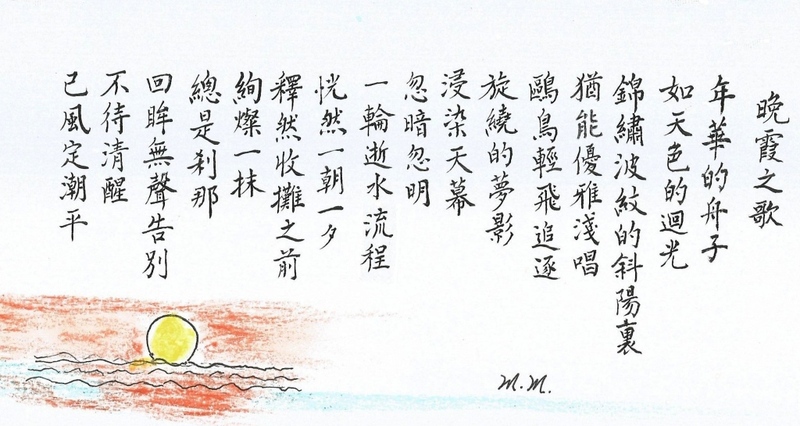 晚霞之歌
年華的舟子
如天色的迴光
錦繡波紋的斜陽裏
猶能優雅淺唱
鷗鳥輕飛追逐
旋繞的夢影
浸染天幕
忽暗忽明
一輪逝水流程
恍然一朝一夕
釋然收攤之前
絢燦一抹
總是剎那
回眸無聲告別
不待清醒
已風定潮平
M.M.